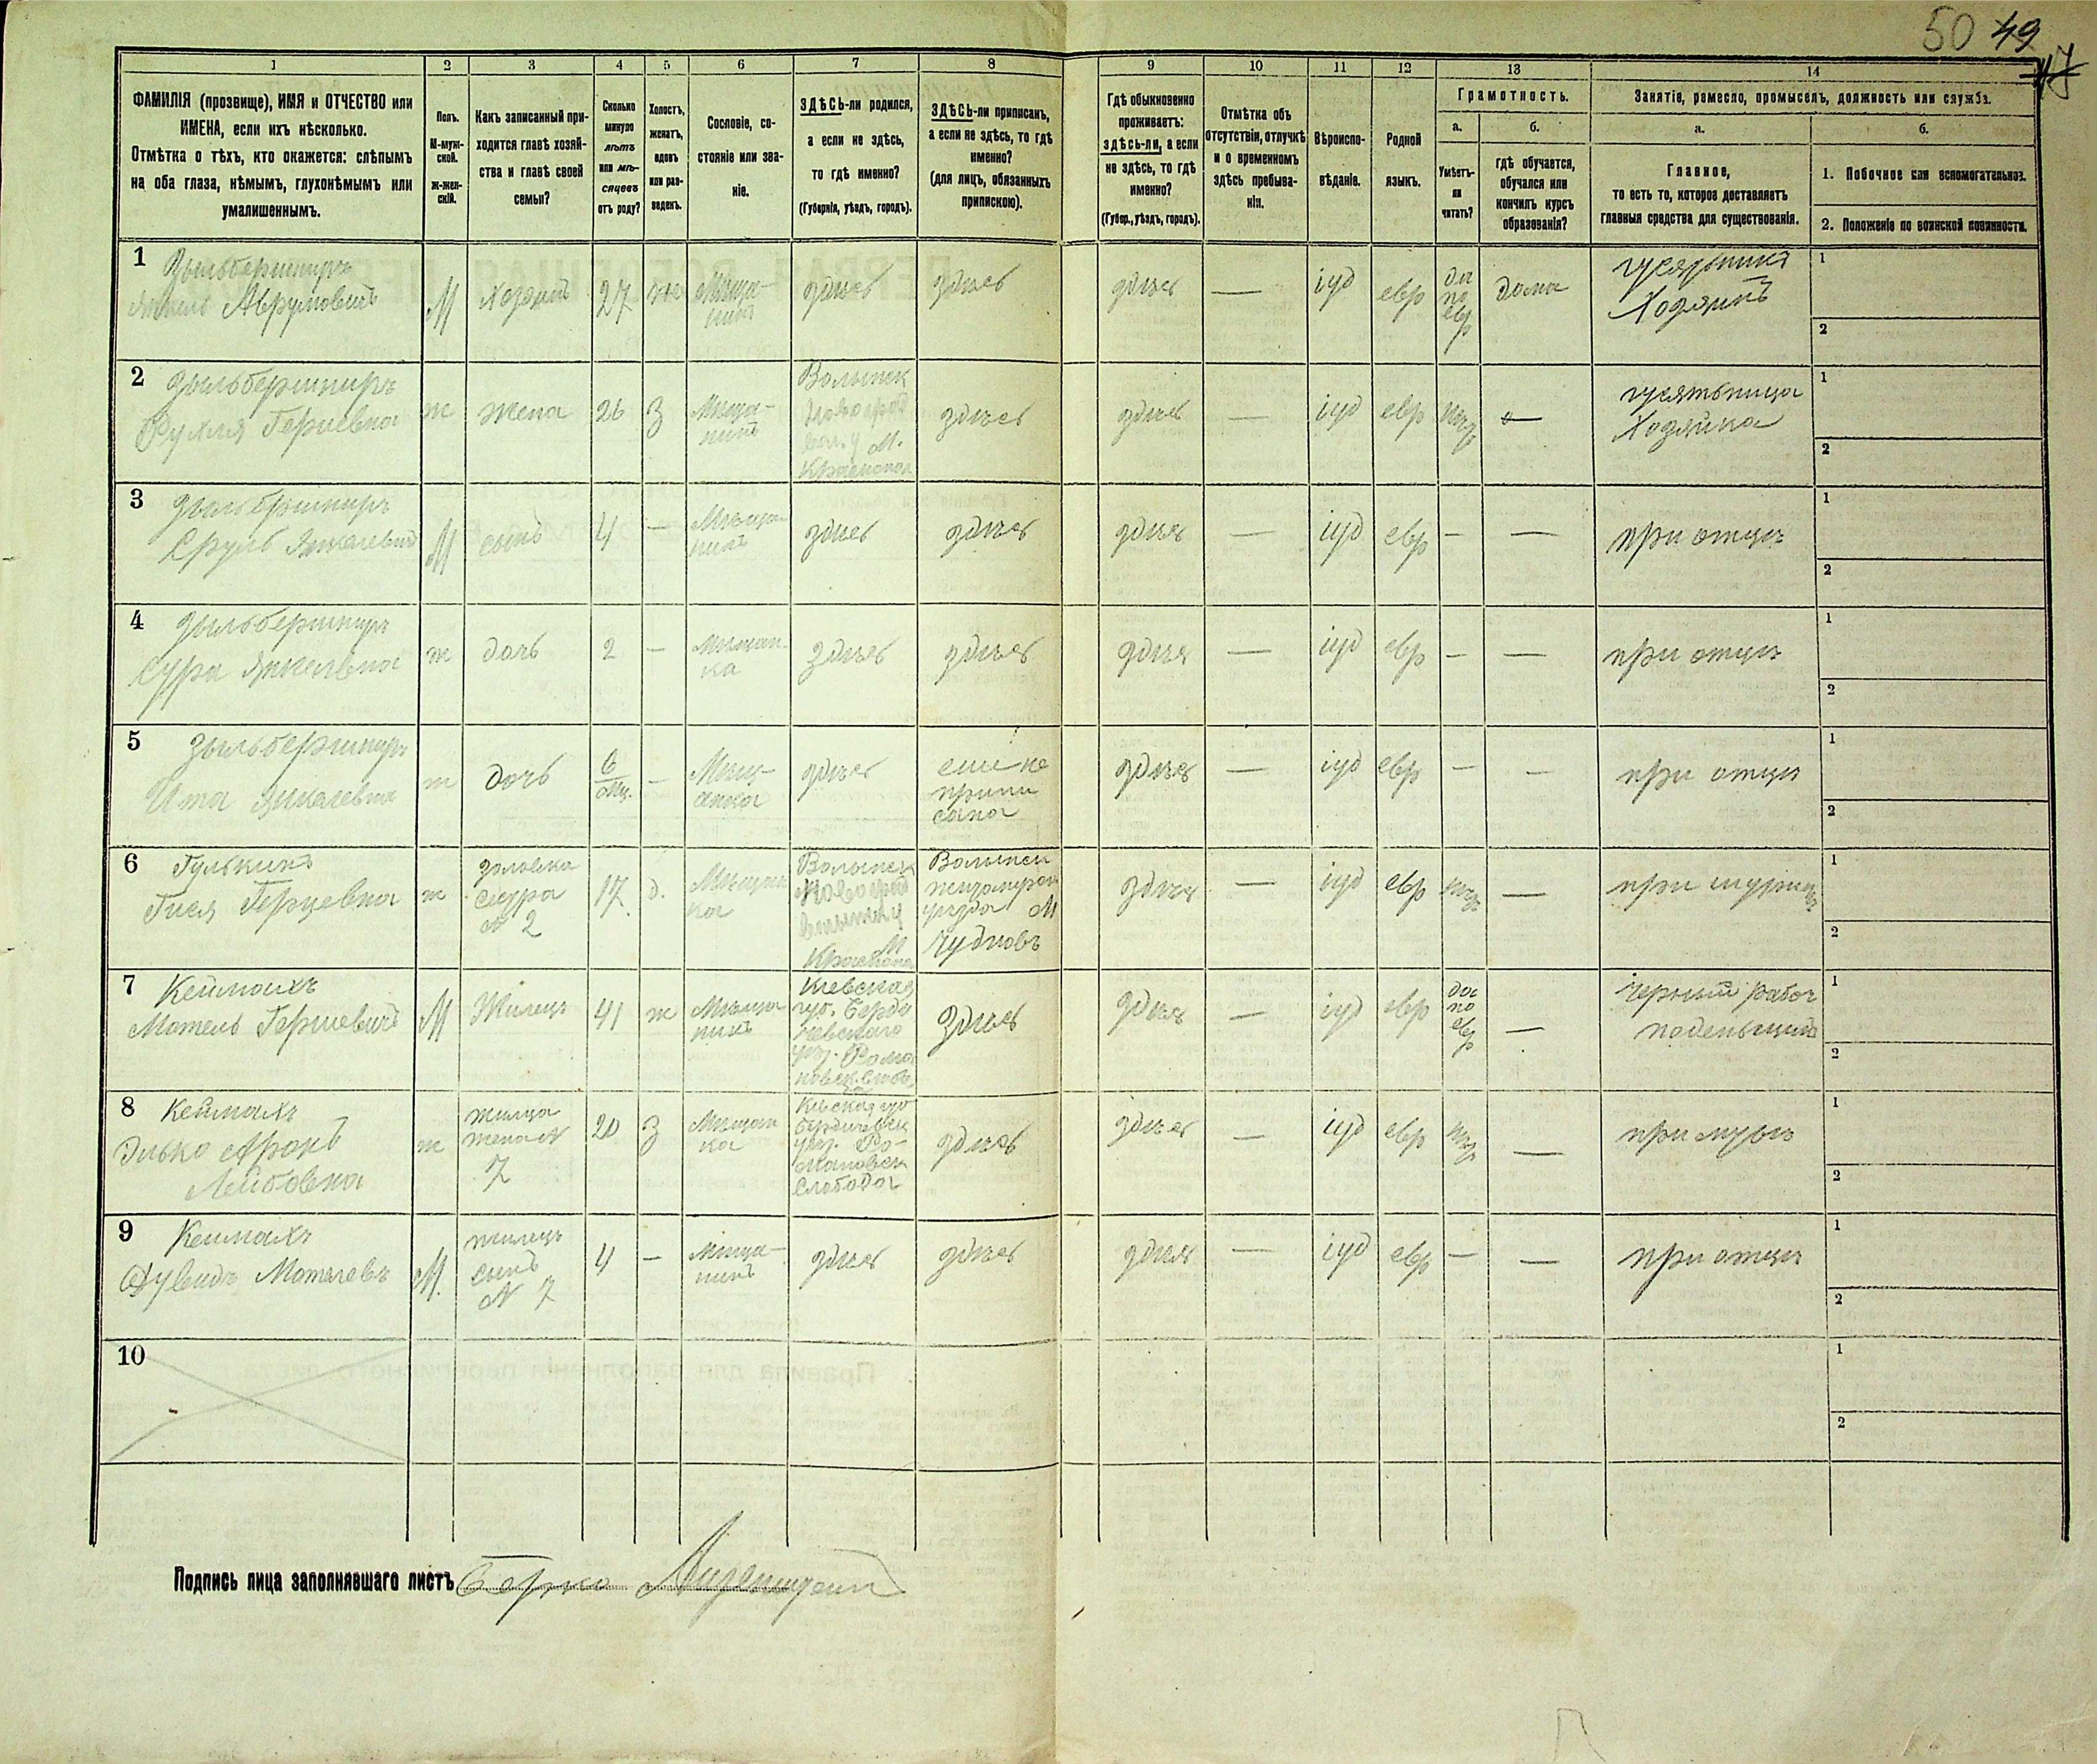 50 49
1 2 3 4 5 6 7 8 9 10 11 12 13 14
ФАМИЛІЯ (прозвище), ИМЯ и ОТЧЕСТВО или
ИМЕНА, если ихъ нѣсколько.
Отмѣтка о тѣхъ, кто окажется: слѣпымъ
на оба глаза, нѣмымъ, глухонѣмымъ или
умалишеннымъ.
Полъ.
М-муж-
ской.
ж-жен-
скій.
Какъ записанный при-
ходится главѣ хозяй-
ства и главѣ своей
семьи?
Сколько
минуло
лѣтъ
или мѣ-
сяцевъ
отъ роду?
Холостъ,
женатъ,
вдовъ
или раз-
веденъ.
Сословіе, со-
стояніе или зва-
ніе.
ЗДѢСЬ-ли родился,
а если не здѣсь,
то гдѣ именно?
(Губернія, уѣздъ, городъ).
ЗДѢСЬ-ли приписанъ,
а если не здѣсь, то гдѣ
именно?
(для лицъ, обязанныхъ
припискою).
Гдѣ обыкновенно
проживаетъ:
здѣсь-ли, а если
не здѣсь, то гдѣ
именно?
(Губер., уѣздъ, городъ).
Отмѣтка объ
отсутствіи, отлучкѣ
и о временномъ
здѣсь пребыва-
ніи.
Вѣроиспо-
вѣданіе.
Родной
языкъ.
Грамотность.
а.
Умѣетъ-
ли
читать?
б.
гдѣ обучается,
обучался или
кончилъ курсъ
образованія?
Занятіе, ремесло, промыселъ, должность или служба.
а.
Главное,
то есть то, которое доставляетъ
главныя средства для существованія.
б.
1. Побочное или вспомогательное.
2. Положеніе по воинской повинности.
1 Зыльбершпиръ
Янкель Аврумовичъ
М
Хозяинъ
27
ж
Мѣща-
нинъ
здѣсь
здѣсь
здѣсь
—
іуд
евр
да
по
евр
дома
Хозяинъ
1
2
2 Зыльбершпиръ
Рухля Герцевна
ж
жена
26
З
Мѣща-
Волынск
м.
Краснопол
здѣсь
здѣсь
—
іуд
евр
—
Хозяйка
1
2
3 Зыльбершпиръ
Сруль Янкелевичъ
М
сынъ
4
—
Мѣща-
нинъ
здѣсь
здѣсь
здѣсь
—
іуд
евр
—
—
при отцѣ
1
2
4 Зыльбершпиръ
Сура Янкелевна
ж
дочь
2
—
Мѣщан-
ка
здѣсь
здѣсь
здѣсь
—
іуд
евр
—
—
при отцѣ
1
2
5 Зыльбершпиръ
Ита Янкелевна
ж
дочь
6
мц.
—
Мѣщ-
анка
здѣсь
еще не
припи
сана
здѣсь
—
іуд
евр
—
—
при отцѣ
1
2
6 Гулькинъ
Гися Герцевна
ж
золовка
сестра
N 2
17
д.
Мѣщан
ка
Волынск
М
Волынск
житомірск
уѣзда М
Чудновъ
здѣсь
—
іуд
евр
—
1
2
7 Кеймахъ
Мотель Гершевичъ
М
Жилецъ
41
ж
Мѣща
нинъ
Кіевская
губ. Берди
чевскаго
уѣз. Рома
новск. слобо
здѣсь
здѣсь
—
іуд
евр
да
по
евр
—
черный рабоч
поденьщикъ
1
2
8 Кеймахъ
Элько Аронъ
Лейбовна
ж
жилица
жена N
7
20
З
Мѣщан
ка
Кіевская губ
Бердичевск
уѣз. Ро-
мановск
слобода
здѣсь
здѣсь
—
іуд
евр
—
при мужѣ
1
2
9 Кеймахъ
Дувидъ Мотелевъ
М.
жилецъ
сынъ
N 7
4
—
мѣща-
нинъ
здѣсь
здѣсь
здѣсь
—
іуд
евр
—
—
при отцѣ
1
2
10
1
2
Подпись лица заполнявшаго листъ Берко